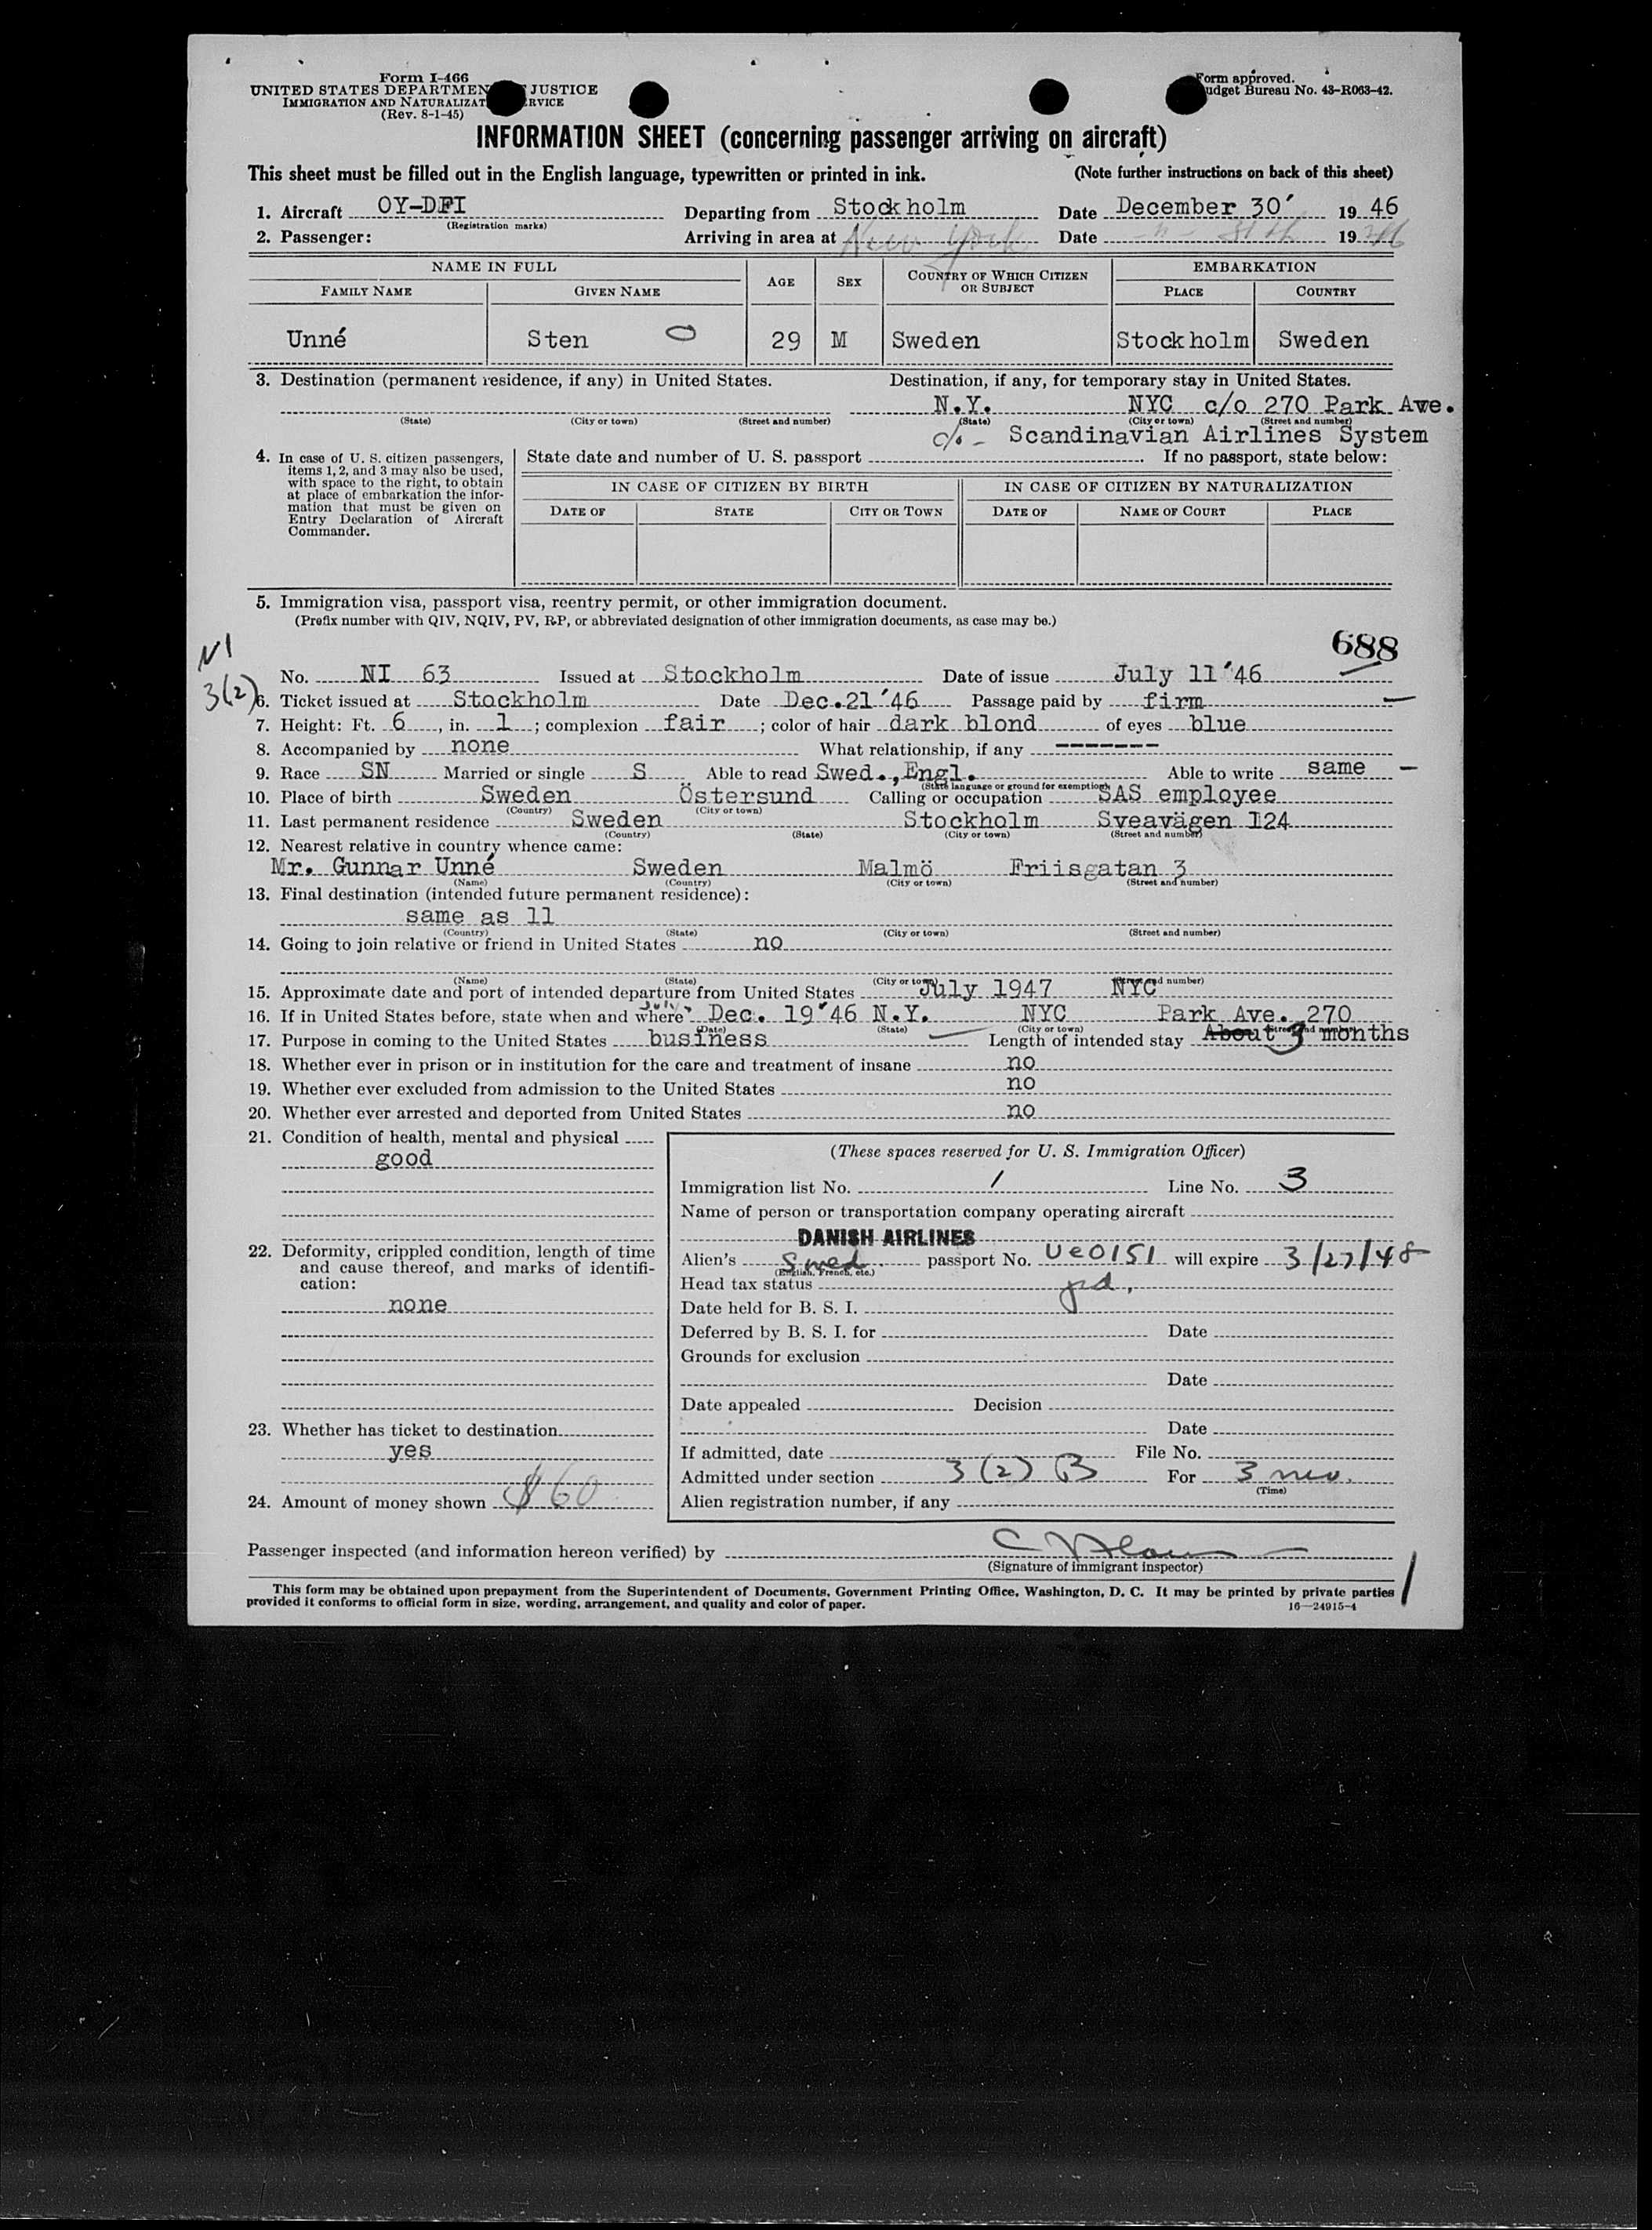 Form I-466
UNITED STATES DEPARTMENT JUSTICE
IMMIGRATION AND NATURALIZAT RVICE
(Rev. 8-1-45)
Form approved.
udget Bureau No. 43-R063-42.
INFORMATION SHEET (concerning passenger arriving on aircraft)
This sheet must be filled out in the English language, typewritten or printed in ink. (Note further instructions on back of this sheet)
1. Aircraft OY-DFI Departing from Stockholm Date December 30' 19 46
(Registration marks)
2. Passenger: Arriving in area at New York Date -"- 31th 19 46
NAME IN FULL AGE SEX COUNTRY OF WHICH CITIZEN OR SUBJECT EMBARKATION
FAMILY NAME GIVEN NAME PLACE COUNTRY
Unné Sten 29 M Sweden Stockholm Sweden
3. Destination (permanent residence, if any) in United States. Destination, if any, for temporary stay in United States.
N.Y. NYC c/o 270 Park Ave.
(State) (City or town) (Street and number) (State) (City or town) (Street and number)
c/o - Scandinavian Airlines System
4. In case of U. S. citizen passengers, items 1, 2, and 3 may also be used, with space to the right, to obtain at place of embarkation the information that must be given on Entry Declaration of Aircraft Commander.
State date and number of U. S. passport If no passport, state below:
IN CASE OF CITIZEN BY BIRTH IN CASE OF CITIZEN BY NATURALIZATION
DATE OF STATE CITY OR TOWN DATE OF NAME OF COURT PLACE
5. Immigration visa, passport visa, reentry permit, or other immigration document.
(Prefix number with QIV, NQIV, PV, RP, or abbreviated designation of other immigration documents, as case may be.)
688
NI
3(2)
No. NI 63 Issued at Stockholm Date of issue July 11 '46
6. Ticket issued at Stockholm Date Dec.21 '46 Passage paid by firm
7. Height: Ft. 6, in. 1; complexion fair; color of hair dark blond of eyes blue
8. Accompanied by none What relationship, if any -------
9. Race SN Married or single S Able to read Swed., Engl. Able to write same
(State language or ground for exemption)
10. Place of birth Sweden Östersund Calling or occupation SAS employee
(Country) (City or town)
11. Last permanent residence Sweden Stockholm Sveavägen 124
(Country) (State) (City or town) (Street and number)
12. Nearest relative in country whence came:
Mr. Gunnar Unné Sweden Malmö Friisgatan 3
(Name) (Country) (City or town) (Street and number)
13. Final destination (intended future permanent residence):
same as 11
(Country) (State) (City or town) (Street and number)
14. Going to join relative or friend in United States no
(Name) (State) (City or town) (Street and number)
15. Approximate date and port of intended departure from United States July 1947 NYC
16. If in United States before, state when and where July Dec. 19'46 N.Y. NYC Park Ave. 270
(Date) (State) (City or town) (Street and number)
17. Purpose in coming to the United States business Length of intended stay About 3 months
18. Whether ever in prison or in institution for the care and treatment of insane no
19. Whether ever excluded from admission to the United States no
20. Whether ever arrested and deported from United States no
21. Condition of health, mental and physical
good
22. Deformity, crippled condition, length of time and cause thereof, and marks of identification:
none
23. Whether has ticket to destination
yes
24. Amount of money shown $60
(These spaces reserved for U. S. Immigration Officer)
Immigration list No. 1 Line No. 3
Name of person or transportation company operating aircraft
DANISH AIRLINES
Alien's Swed. passport No. Ue0151 will expire 3/27/48
(English, French, etc.)
Head tax status pd.
Date held for B. S. I.
Deferred by B. S. I. for Date
Grounds for exclusion
Date
Date appealed Decision
Date
If admitted, date File No.
Admitted under section 3 (2) B For 3 mo.
(Time)
Alien registration number, if any
Passenger inspected (and information hereon verified) by
(Signature of immigrant inspector)
This form may be obtained upon prepayment from the Superintendent of Documents, Government Printing Office, Washington, D. C. It may be printed by private parties
provided it conforms to official form in size, wording, arrangement, and quality and color of paper. 16—24915-4